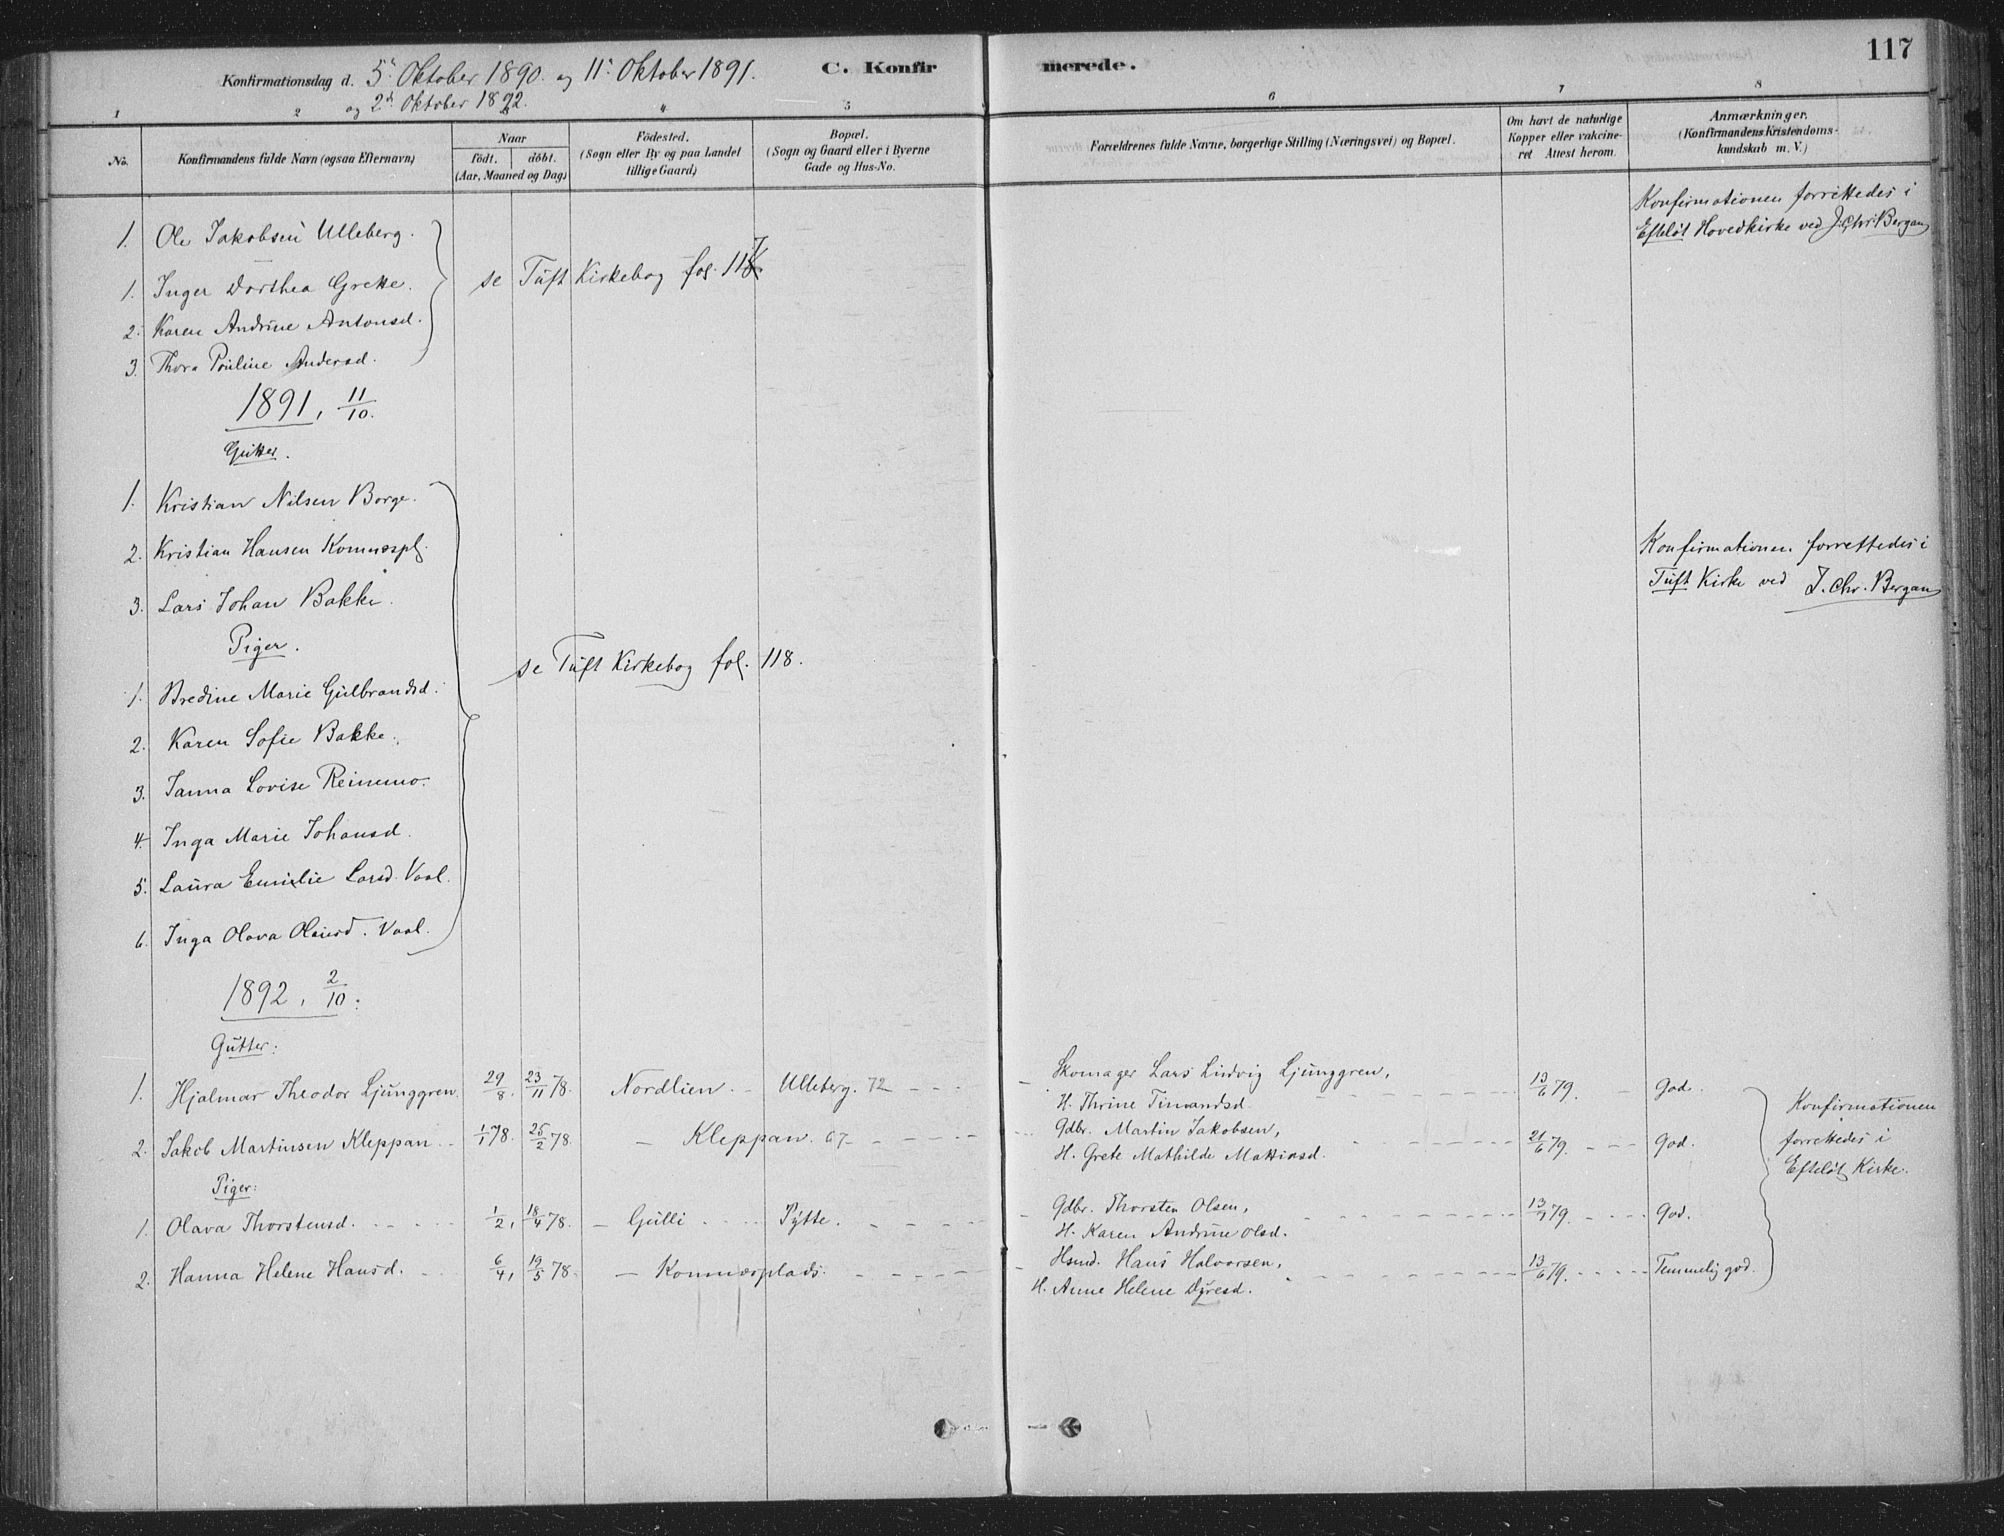 117
Konfirmationsdag d. 5te Oktober 1890. og 11te Oktober 1891. C. Konfirmerede.
og 2den Oktober 1892.
1 2 4 5 6 7 8
No. Konfirmandens fulde Navn (ogsaa Efternavn) Naar födt. döbt. (Aar, Maaned og Dag) Födested. (Sogn eller By og paa Landet tillige Gaard) Bopæl. (Sogn og Gaard eller i Byerne Gade og Hus-No. Forældrenes fulde Navne, borgerlige Stilling (Næringsvei) og Bopæl. Om havt de naturlige Kopper eller vakcineret Attest herom. Anmærkninger. (Konfirmandens Kristendomskundskab m. V.)
Konfirmationen forrettedes i
Efteløt Hovedkirke ved J. Chr. Bergan
1. Ole Jakobsen Ulleberg.
1. Inger Dorthea Grette. se Tuft Kirkebog fol. 117
2. Karen Andrine Antonsd.
3. Thora Pauline Andersd.
1891, 11/10.
Gutter.
1. Kristian Nilsen Borge.
2. Kristian Hansen Komnæspl.
Konfirmationen forrettedes i
Tuft Kirke ved J. Chr. Bergan
3. Lars Johan Bakke.
Piger.
se Tuft Kirkebog fol. 118.
1. Bredine Marie Gulbrandsd.
2. Karen Sofie Bakke.
3. Janna Lovise Reinemo.
4. Inga Marie Johansd.
5. Laura Emilie Larsd. Vaal.
6. Inga Olava Olausd. Vaal.
1892, 2/10.
Gutter:
1. Hjalmar Theodor Ljunggren. 29/8. 23/11 78. Nordlien Ulleberg. 72 Skomager Lars Ludvig Ljunggren, 13/6 79. God.
H. Thrine Timandsd.
2. Jakob Martinsen Kleppan 1/1 78. 25/2 78. Kleppan. 67 Gdbr. Martin Jakobsen, 21/6 79. God.
H. Grete Mathilde Mattiasd.
Konfirmationen
forrettedes i
Efteløt Kirke.
Piger:
1. Olava Thorstensd. 1/2, 18/4 78. Gulli Pytte. Gdbr. Thorsten Olsen, 13/7 79. God.
H. Karen Andrine Olsd.
2. Hanna Helene Hansd. 6/4, 19/5 78. Komnæsplads. Hsmd. Hans Halvorsen, 13/6 79. Temmelig god.
H. Anne Helene Dyresd.